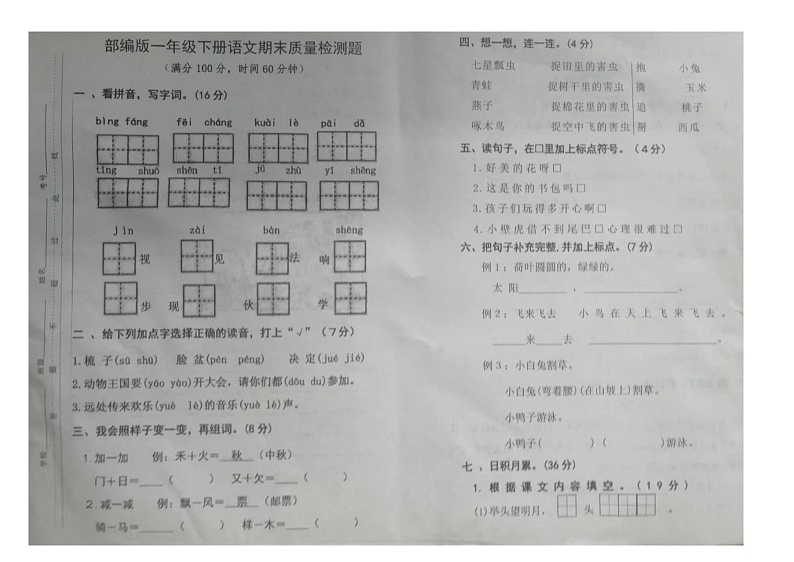 部编版一年级下册语文期末质量检测题
（满分100分，时间60分钟）
一 、看拼音，写字词。（16分）
bìng fáng fēi cháng kuài lè pāi dǎ
tīng shuō shēn tǐ jǔ zhù yī shēng
jìn zài bàn shēng
视 见 法 响
步 现 伙 学
二 、给下列加点字选择正确的读音，打上“√”（7分）
1.梳 子(sū shū) 脸 盆(pén péng) 决 定(jué jié)
2.动物王国要(yāo yào)开大会，请你们都(dōu du)参加。
3.远处传来欢乐(yuè lè)的音乐(yuè lè)声。
三、我会照样子变一变，再组词。(8分)
1.加一加 例：禾＋火＝ 秋 （中秋）
门＋日＝____（ ） 又＋欠＝____（ ）
2.减一减 例：飘－风＝ 票 （邮票）
骑－马＝____（ ） 样－木＝____（ ）
学校
班级
姓名
考号
密 封 线 内 不 答 题
四、想一想，连一连。(4分)
七星瓢虫 捉田里的害虫 抱 小兔
青蛙 捉树干里的害虫 摘 玉米
燕子 捉棉花里的害虫 追 桃子
啄木鸟 捉空中飞的害虫 掰 西瓜
五、读句子，在□里加上标点符号。（4分）
1.好美的花呀□
2.这是你的书包吗□
3.孩子们玩得多开心啊□
4.小壁虎借不到尾巴□心理很难过□
六、把句子补充完整,并加上标点。(7分)
例1：荷叶圆圆的，绿绿的。
太 阳________，________。
例2：飞来飞去 小鸟在天上飞来飞去。
____来____去 ________________
例3：小白兔割草。
小白兔(弯着腰)(在山坡上)割草。
小鸭子游泳。
小鸭子( )( )游泳。
七 、日积月累。(36分)
1.根据课文内容填空。（19分）
(1)举头望明月， 头 。